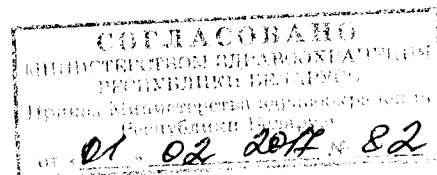 СОГЛАСОВАНО
МИНИСТЕРСТВОМ ЗДРАВООХРАНЕНИЯ
РЕСПУБЛИКИ БЕЛАРУСЬ
Приказ Министерства здравоохранения
Республики Беларусь
от «01» 02 2017 № 82